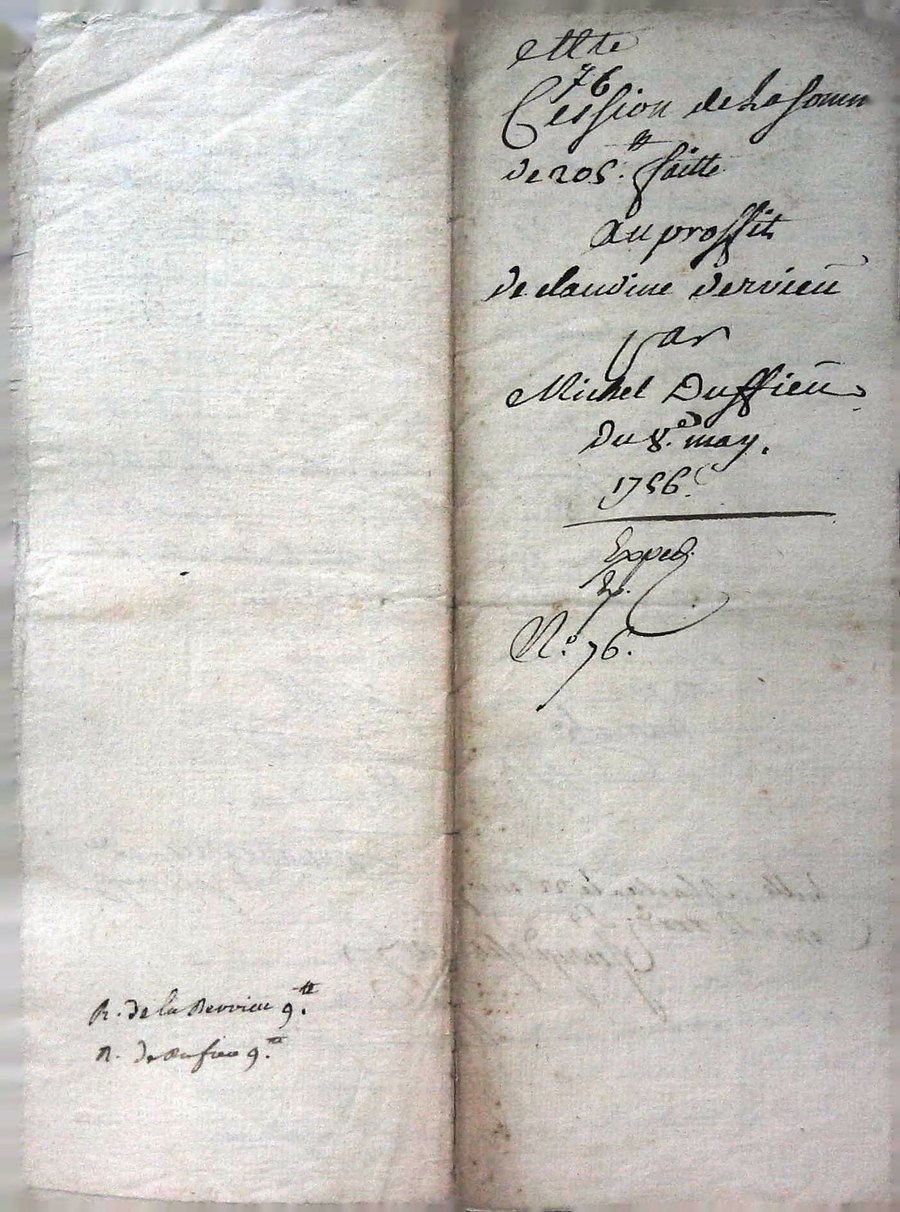 76
Cession de La somm
de 205.tt faitte
au proffit
de claudine dervieu
par
Michel Duffieu
du 8.e may.
1756.
Exped.
N.o 76.
R. de la Dervieu 9.tt
R. de Dufieu 9.tt